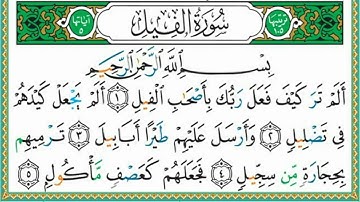 ترتيبها ١٠٥ سُورَةُ الْفِيلِ آياتها ٥
بِسْمِ اللَّهِ الرَّحْمَٰنِ الرَّحِيمِ
أَلَمْ تَرَ كَيْفَ فَعَلَ رَبُّكَ بِأَصْحَٰبِ الْفِيلِ ١ أَلَمْ يَجْعَلْ كَيْدَهُمْ
فِي تَضْلِيلٍ ٢ وَأَرْسَلَ عَلَيْهِمْ طَيْرًا أَبَابِيلَ ٣ تَرْمِيهِم
بِحِجَارَةٍ مِّن سِجِّيلٍ ٤ فَجَعَلَهُمْ كَعَصْفٍ مَّأْكُولٍ ٥